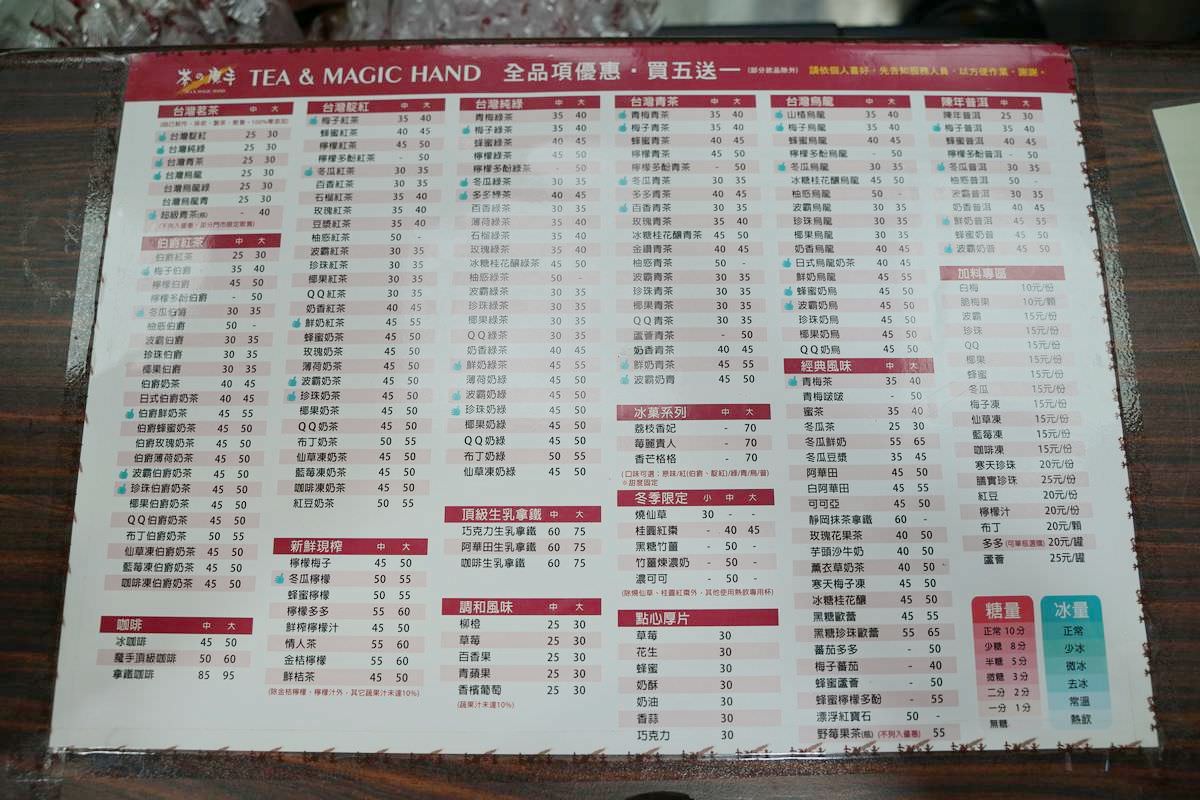 茶の魔手 TEA & MAGIC HAND 全品項優惠・買五送一 (部分飲品除外) 請依個人喜好，先告知服務人員，以方便作業，謝謝。
台灣茗茶 中 大
台灣靛紅 25 30
台灣純綠 25 30
台灣青茶 25 30
台灣烏龍 25 30
台灣烏龍綠 25 30
台灣烏龍青 25 30
超級青茶(瓶) - 40
伯爵紅茶 中 大
伯爵紅茶 25 30
梅子伯爵 35 40
檸檬伯爵 45 50
檸檬多酚伯爵 - 50
冬瓜伯爵 30 35
柚惑伯爵 50 -
波霸伯爵 30 35
珍珠伯爵 30 35
椰果伯爵 30 35
伯爵奶茶 40 45
日式伯爵奶茶 40 45
伯爵鮮奶茶 45 55
伯爵蜂蜜奶茶 45 50
伯爵玫瑰奶茶 45 50
伯爵薄荷奶茶 45 50
波霸伯爵奶茶 45 50
珍珠伯爵奶茶 45 50
椰果伯爵奶茶 45 50
QQ伯爵奶茶 45 50
布丁伯爵奶茶 50 55
仙草凍伯爵奶茶 45 50
藍莓凍伯爵奶茶 45 50
咖啡凍伯爵奶茶 45 50
咖啡 中 大
冰咖啡 45 50
魔手頂級咖啡 50 60
拿鐵咖啡 85 95
台灣靛紅 中 大
梅子紅茶 35 40
蜂蜜紅茶 40 45
檸檬紅茶 45 50
檸檬多酚紅茶 - 50
冬瓜紅茶 30 35
百香紅茶 30 35
石榴紅茶 35 40
玫瑰紅茶 35 40
豆漿紅茶 35 40
柚惑紅茶 50 -
波霸紅茶 30 35
珍珠紅茶 30 35
椰果紅茶 30 35
QQ紅茶 30 35
奶香紅茶 40 45
鮮奶紅茶 45 55
蜂蜜奶茶 45 50
玫瑰奶茶 45 50
薄荷奶茶 45 50
波霸奶茶 45 50
珍珠奶茶 45 50
椰果奶茶 45 50
QQ奶茶 45 50
布丁奶茶 50 55
仙草凍奶茶 45 50
藍莓凍奶茶 45 50
咖啡凍奶茶 45 50
紅豆奶茶 50 55
新鮮現榨 中 大
檸檬梅子 45 50
冬瓜檸檬 50 55
蜂蜜檸檬 50 55
檸檬多多 55 60
鮮榨檸檬汁 45 50
情人茶 55 60
金桔檸檬 55 60
鮮桔茶 45 50
(除金桔檸檬、檸檬汁外，其它蔬果汁未達10%)
台灣純綠 中 大
青梅綠茶 35 40
梅子綠茶 35 40
蜂蜜綠茶 40 45
檸檬綠茶 45 50
檸檬多酚綠茶 - 50
冬瓜綠茶 30 35
多多綠茶 40 45
百香綠茶 30 35
薄荷綠茶 35 40
石榴綠茶 35 40
玫瑰綠茶 35 40
冰糖桂花釀綠茶 45 50
柚惑綠茶 50 -
波霸綠茶 30 35
珍珠綠茶 30 35
椰果綠茶 30 35
QQ綠茶 30 35
奶香綠茶 40 45
鮮奶綠茶 45 55
薄荷奶綠 45 50
波霸奶綠 45 50
珍珠奶綠 45 50
椰果奶綠 45 50
QQ奶綠 45 50
布丁奶綠 50 55
仙草凍奶綠 45 50
頂級生乳拿鐵 中 大
巧克力生乳拿鐵 60 75
阿華田生乳拿鐵 60 75
咖啡生乳拿鐵 60 75
調和風味 中 大
柳橙 25 30
草莓 25 30
百香果 25 30
青蘋果 25 30
香檳葡萄 25 30
(蔬果汁未達10%)
台灣青茶 中 大
青梅青茶 35 40
梅子青茶 35 40
蜂蜜青茶 40 45
檸檬青茶 45 50
檸檬多酚青茶 - 50
冬瓜青茶 30 35
多多青茶 40 45
百香青茶 30 35
玫瑰青茶 35 40
冰糖桂花釀青茶 45 50
金鑽青茶 40 45
柚惑青茶 50 -
波霸青茶 30 35
珍珠青茶 30 35
椰果青茶 30 35
QQ青茶 30 35
蘆薈青茶 - 50
奶香青茶 40 45
鮮奶青茶 45 55
波霸奶青 45 50
冰菓系列 中 大
荔枝香妃 - 70
莓麗貴人 - 70
香芒格格 - 70
(口味可選：原味/紅(伯爵、靛紅)/綠/青/烏/普)
※甜度固定
冬季限定 小 中 大
燒仙草 30 - -
桂圓紅棗 - 40 45
黑糖竹薑 - 50 -
竹薑煉濃奶 - 50 -
濃可可 - 50 -
(除燒仙草、桂圓紅棗外，其他使用熱飲專用杯)
點心厚片
草莓 30
花生 30
蜂蜜 30
奶酥 30
奶油 30
香蒜 30
巧克力 30
台灣烏龍 中 大
山楂烏龍 35 40
梅子烏龍 35 40
蜂蜜烏龍 40 45
檸檬多酚烏龍 - 50
冬瓜烏龍 30 35
冰糖桂花釀烏龍 45 50
柚惑烏龍 50 -
波霸烏龍 30 35
珍珠烏龍 30 35
椰果烏龍 30 35
奶香烏龍 40 45
日式烏龍奶茶 40 45
鮮奶烏龍 45 55
蜂蜜奶烏 45 50
波霸奶烏 45 50
珍珠奶烏 45 50
椰果奶烏 45 50
QQ奶烏 45 50
經典風味 中 大
青梅茶 35 40
青梅啵啵 - 50
蜜茶 35 40
冬瓜茶 25 30
冬瓜鮮奶 55 65
冬瓜豆漿 35 45
阿華田 45 50
白阿華田 45 55
可可亞 45 50
靜岡抹茶拿鐵 60 -
玫瑰花果茶 40 50
芋頭沙牛奶 40 50
薰衣草奶茶 40 50
寒天梅子凍 45 50
冰糖桂花釀 45 50
黑糖歐蕾 45 55
黑糖珍珠歐蕾 55 65
蕃茄多多 - 50
梅子蕃茄 - 40
蜂蜜蘆薈 - 50
蜂蜜檸檬多酚 - 55
漂浮紅寶石 50 -
野莓果茶(瓶) (不列入優惠) 55
陳年普洱 中 大
陳年普洱 25 30
梅子普洱 35 40
蜂蜜普洱 40 45
檸檬多酚普洱 - 50
冬瓜普洱 30 35
柚惑普洱 50 -
波霸普洱 30 35
奶香普洱 40 45
鮮奶普洱 45 55
蜂蜜奶普 45 50
波霸奶普 45 50
加料專區
白梅 10元/份
脆梅果 10元/顆
波霸 15元/份
珍珠 15元/份
QQ 15元/份
椰果 15元/份
蜂蜜 15元/份
冬瓜 15元/份
梅子凍 15元/份
仙草凍 15元/份
藍莓凍 15元/份
咖啡凍 15元/份
寒天珍珠 20元/份
膳寶珍珠 25元/份
紅豆 20元/份
檸檬汁 20元/份
布丁 20元/顆
多多(可單瓶選購) 20元/罐
蘆薈 25元/罐
糖量
正常 10分
少糖 8分
半糖 5分
微糖 3分
二分 2分
一分 1分
無糖
冰量
正常
少冰
微冰
去冰
常溫
熱飲